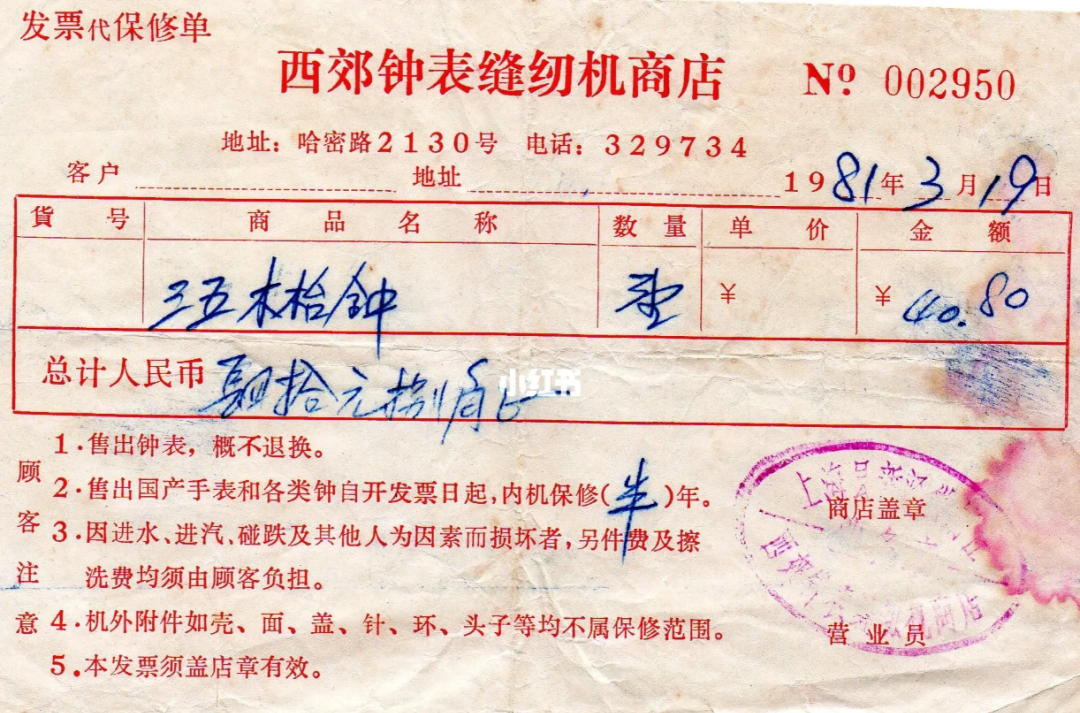 发票代保修单
西郊钟表缝纫机商店 Nº 002950
地址：哈密路2130号 电话：329734
客户 地址 1981年3月19日
貨号 商品名称 数量 单价 金额
三五木枱钟 ¥ ¥ 40.80
总计人民币 肆拾元捌角正
小红书
1.售出钟表，概不退换。
2.售出国产手表和各类钟自开发票日起，内机保修(半)年。
3.因进水、进汽、碰跌及其他人为因素而损坏者，另件费及擦
洗费均须由顾客负担。
4.机外附件如壳、面、盖、针、环、头子等均不属保修范围。
5.本发票须盖店章有效。
顾客注意
商店盖章
营业员
上海
西郊
机商店